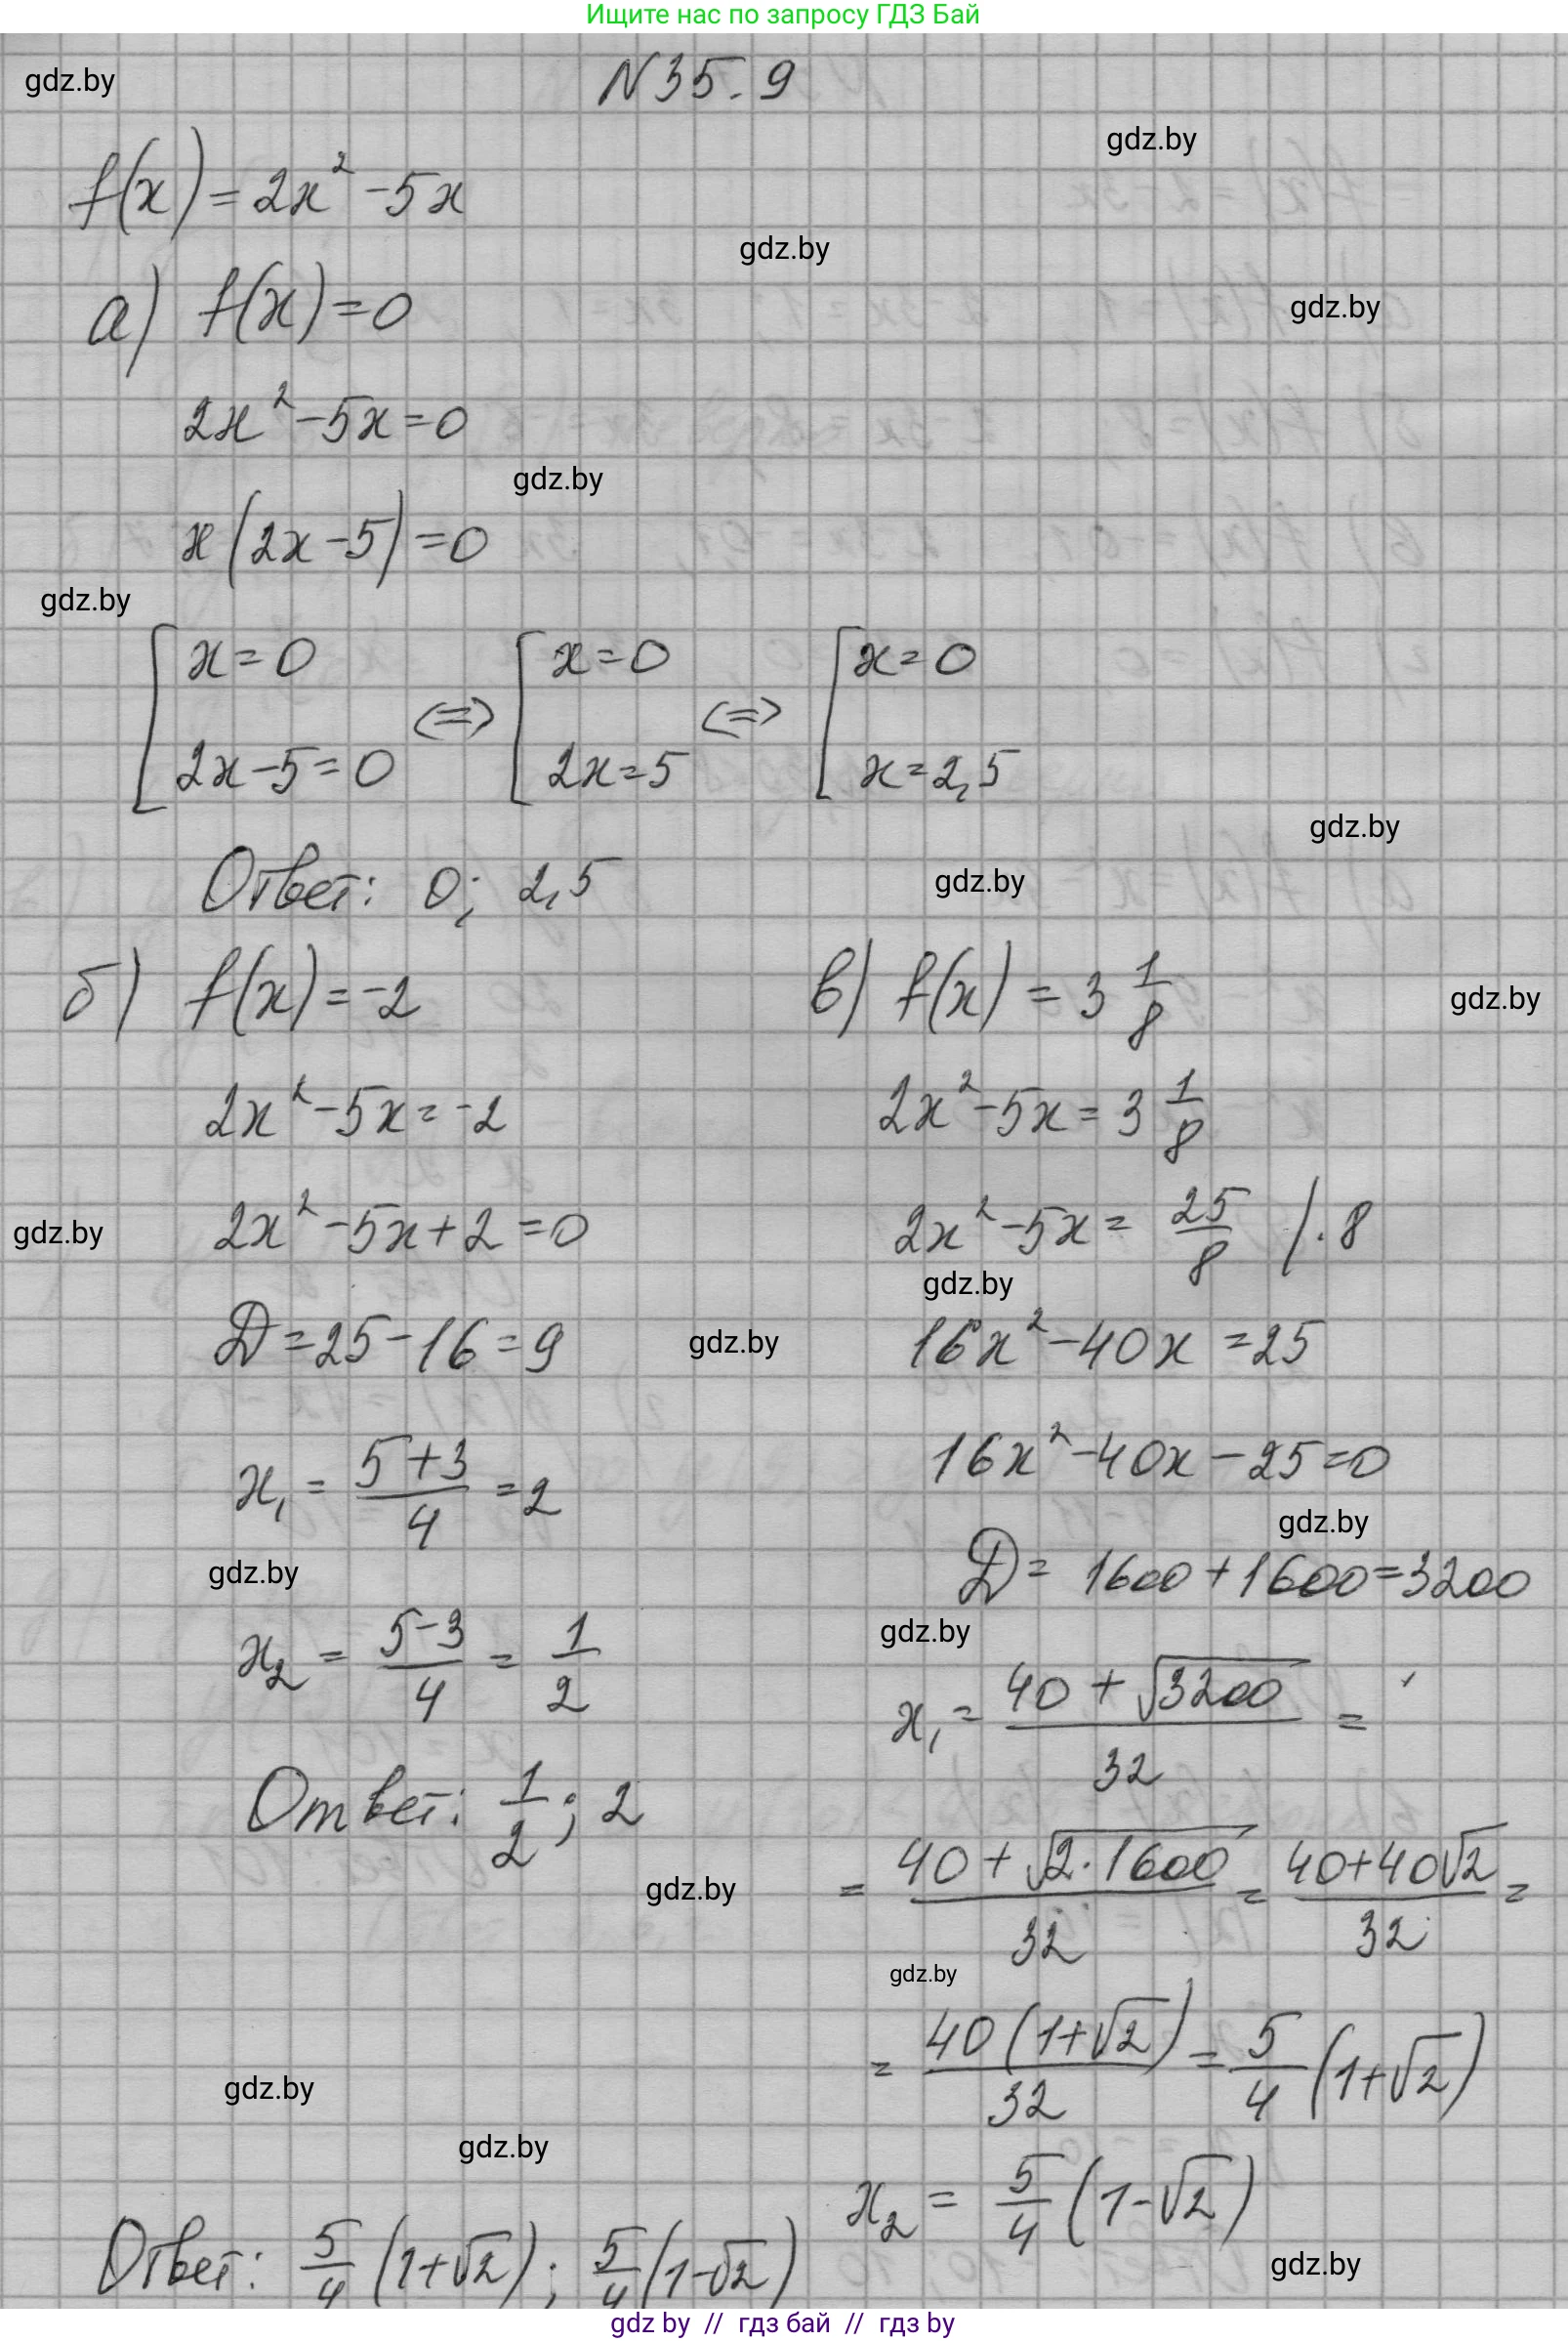 Ищите нас по запросу ГДЗ Бай
gdz.by
N 35.9
gdz.by
f(x) = 2x² - 5x
gdz.by
а) f(x) = 0
gdz.by
2x² - 5x = 0
gdz.by
x(2x - 5) = 0
gdz.by
[ x = 0 <=> [ x = 0 <=> [ x = 0
2x - 5 = 0 2x = 5 x = 2,5
gdz.by
Ответ: 0; 2,5
gdz.by
б) f(x) = -2
2x² - 5x = -2
2x² - 5x + 2 = 0
gdz.by
D = 25 - 16 = 9
gdz.by
x₁ = (5+3)/4 = 2
gdz.by
x₂ = (5-3)/4 = 1/2
Ответ: 1/2; 2
gdz.by
в) f(x) = 3 1/8
gdz.by
2x² - 5x = 3 1/8
2x² - 5x = 25/8 | · 8
gdz.by
16x² - 40x = 25
16x² - 40x - 25 = 0
gdz.by
D = 1600 + 1600 = 3200
gdz.by
x₁ = (40 + √3200)/32 =
= (40 + √2·1600)/32 = (40+40√2)/32 =
gdz.by
= 40(1+√2)/32 = 5/4 (1+√2)
gdz.by
gdz.by
x₂ = 5/4 (1-√2)
Ответ: 5/4 (1+√2); 5/4 (1-√2)
gdz.by
gdz by // гдз бай // гдз by